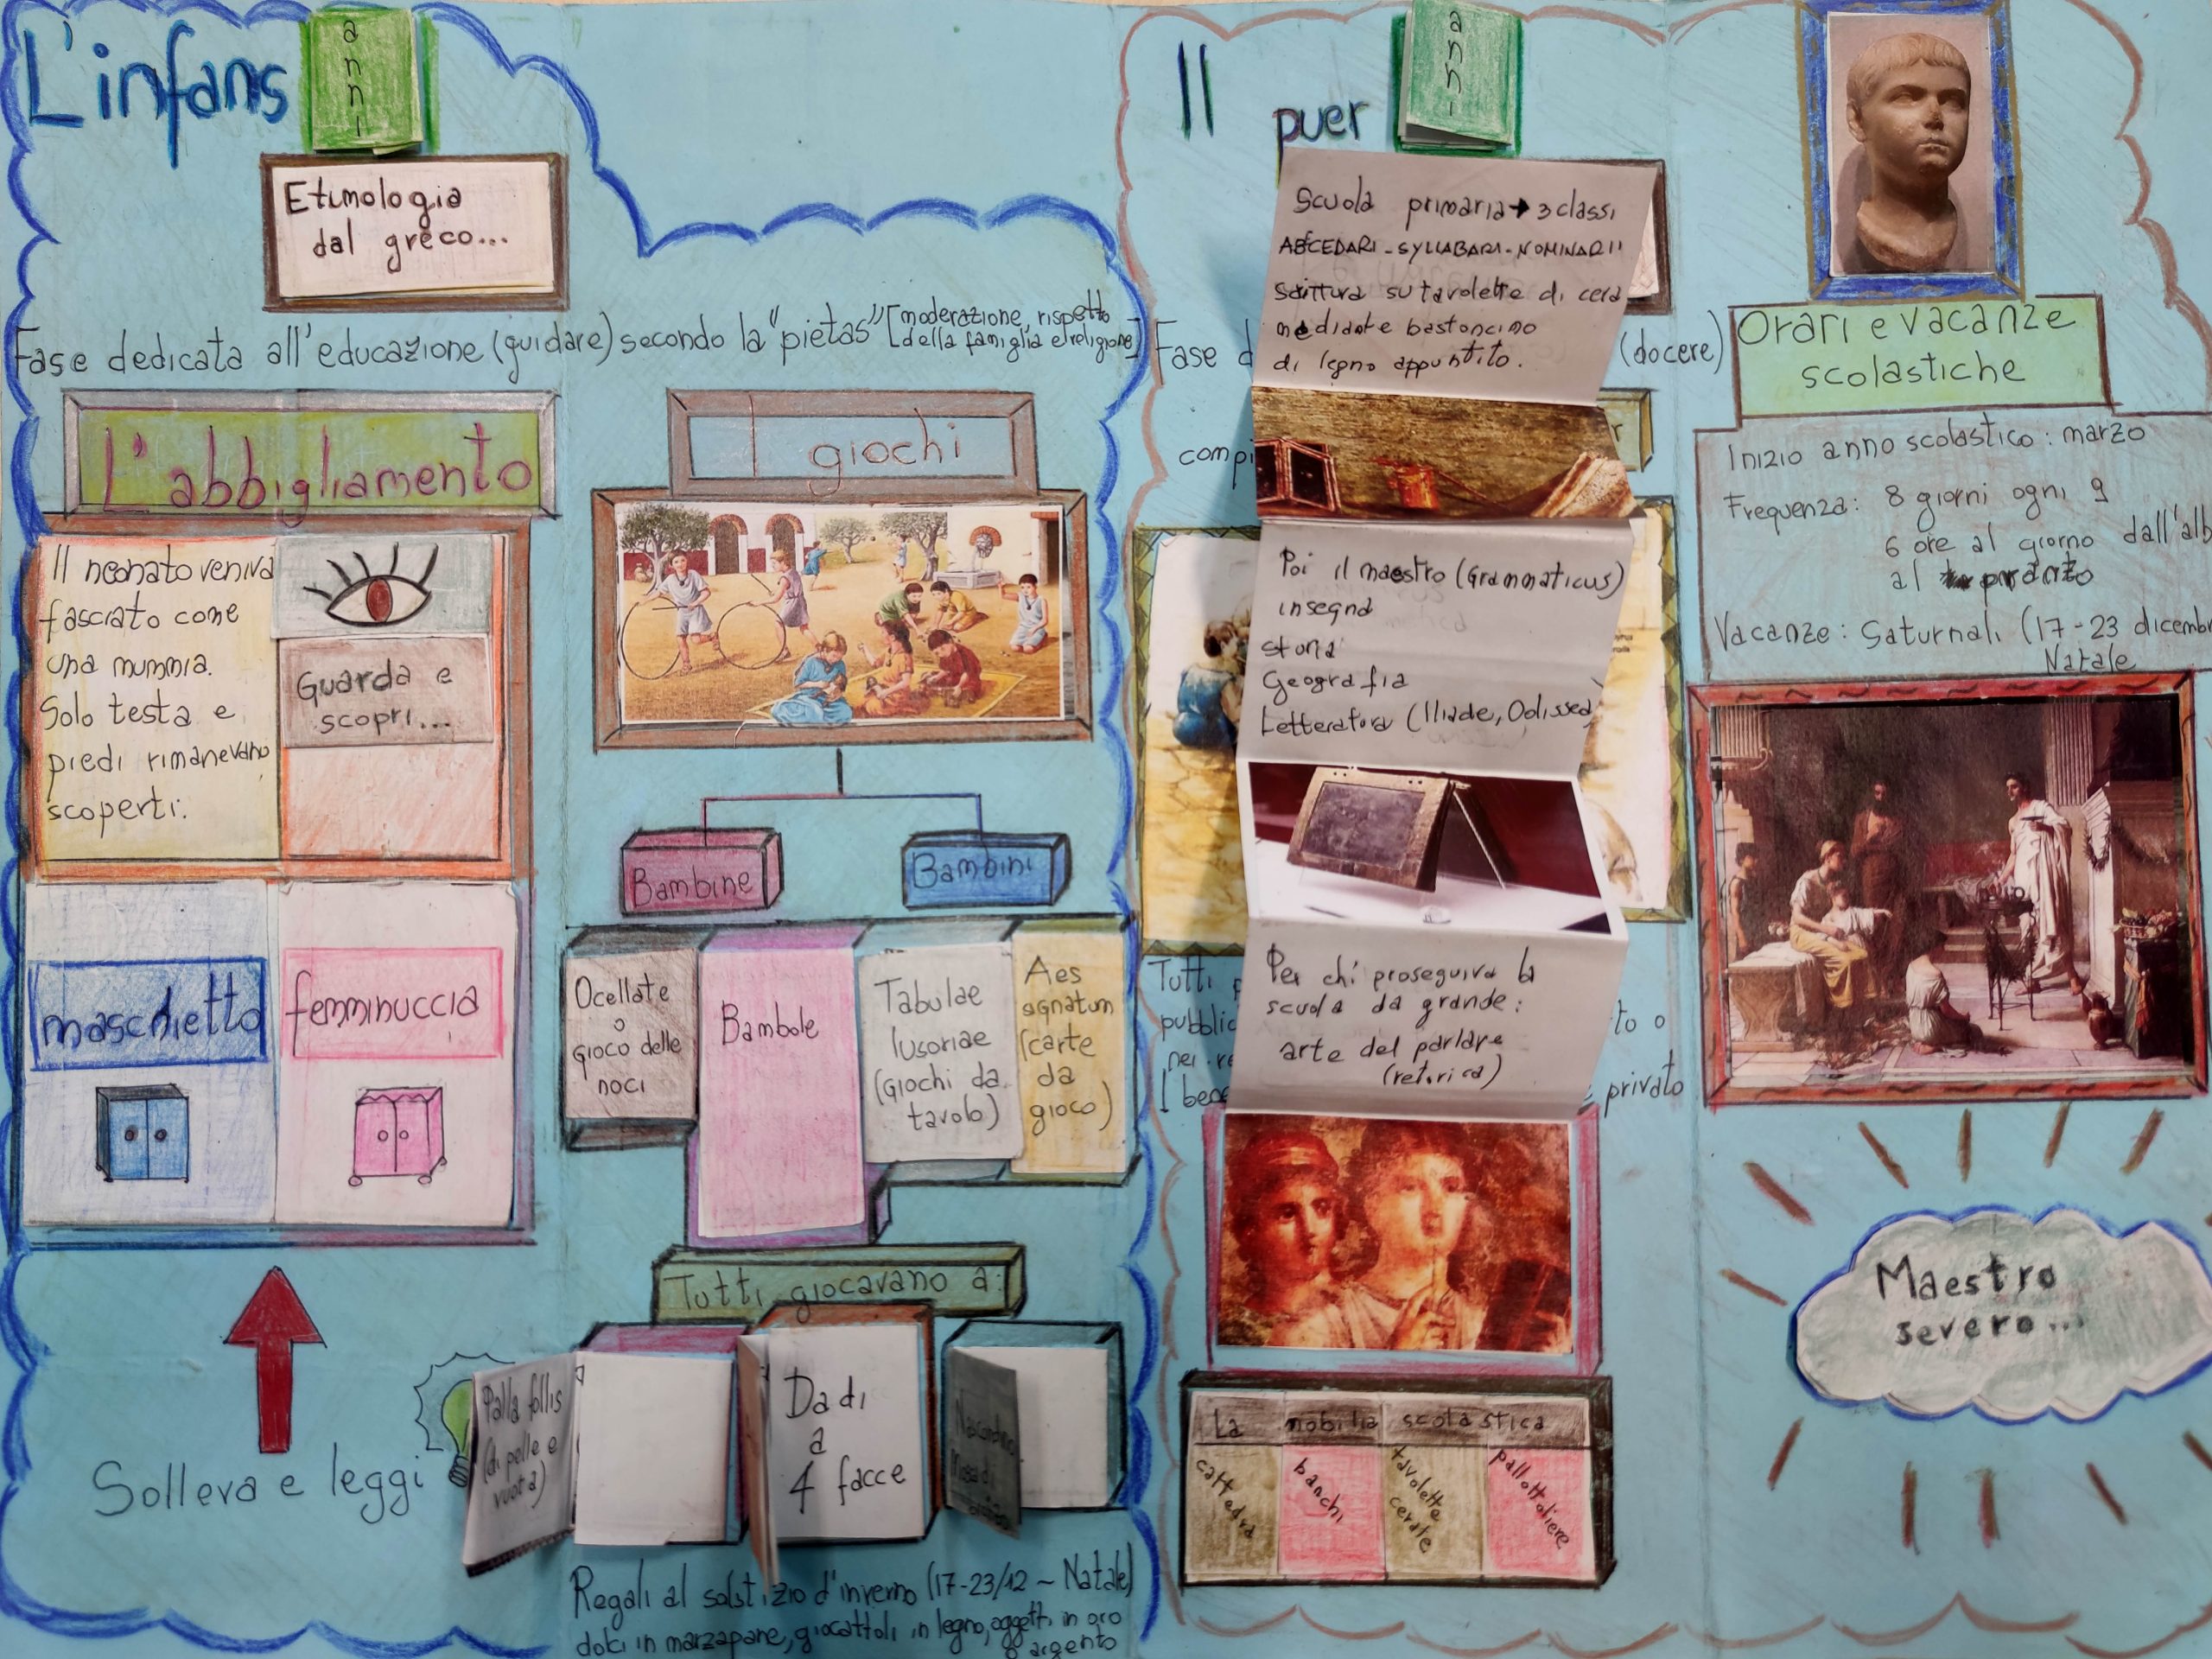 L'infans
anni
Etimologia
dal greco...
Fase dedicata all'educazione (guidare) secondo la "pietas" [moderazione, rispetto
della famiglia e religione]
L'abbigliamento
Il neonato veniva
fasciato come
una mummia.
Solo testa e
piedi rimanevano
scoperti.
Guarda e
scopri...
maschietto
femminuccia
Solleva e leggi
I giochi
Bambine
Bambini
Ocellate
o
gioco delle
noci
Bambole
Tabulae
lusoriae
(giochi da
tavolo)
Aes
signatum
(carte
da
gioco)
Tutti giocavano a:
Palla follis
(di pelle e
vuota)
Dadi
a
4 facce
Regali al solstizio d'inverno (17-23/12 ~ Natale)
dolci in marzapane, giocattoli in legno, oggetti in oro
o argento
Il puer
anni
Scuola primaria → 3 classi
ABCEDARI - SYLLABARI - NOMINARII
Scrittura su tavolette di cera
mediante bastoncino
di legno appuntito.
Fase
(docere)
Poi il maestro (Grammaticus)
insegna
storia
Geografia
Letteratura (Iliade, Odissea)
Per chi proseguiva la
scuola da grande:
arte del parlare
(retorica)
Tutti
privato
La mobilia scolastica
cattedra
banchi
tavolette
cerate
pallottoliere
Orari e vacanze
scolastiche
Inizio anno scolastico: marzo
Frequenza: 8 giorni ogni 9
6 ore al giorno dall'alb
al pranzo
Vacanze: Saturnali (17-23 dicembr
Natale
Maestro
severo...